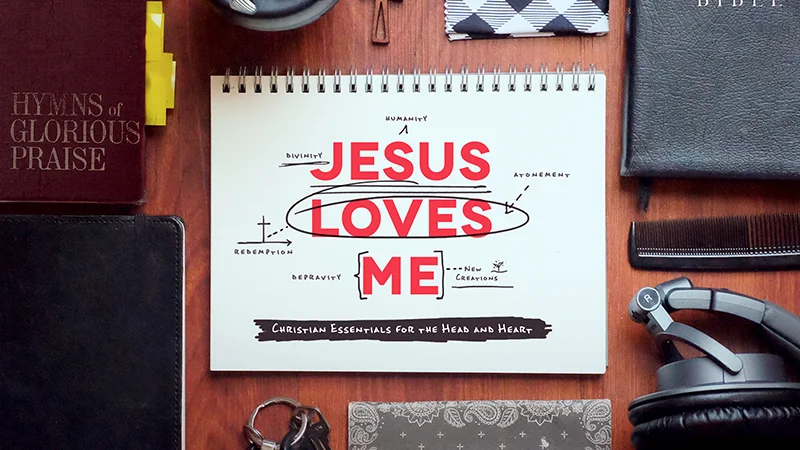 BIBLE
HYMNS of
GLORIOUS
PRAISE
HUMANITY
DIVINITY
JESUS
ATONEMENT
LOVES
REDEMPTION
DEPRAVITY
ME
NEW
CREATIONS
CHRISTIAN ESSENTIALS FOR THE HEAD AND HEART
R